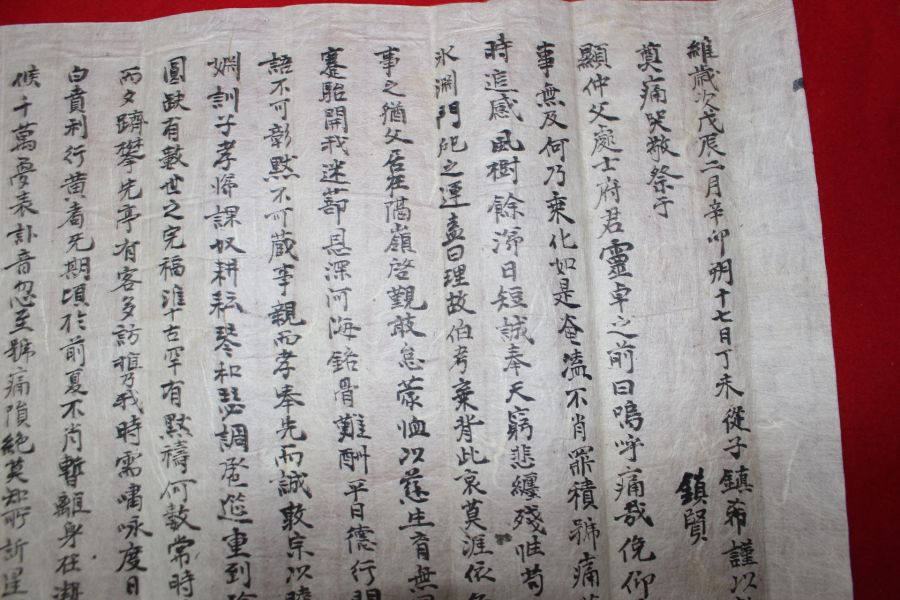 維歲次戊辰二月辛卯朔十七日丁未從子鎮希謹以
鎮賢
奠痛哭敬祭于
顯仲父處士府君靈卓之前曰嗚呼痛哉俛仰
事無及何乃乘化如是奄溘不肖罪積號痛
時追感風樹餘淨日短誠奉天窮悲纏殘惟苟
氷淵門祀之運盍曰理故伯考棄背此哀莫涯依
事之猶父居在隔嶺啓覲敢怠蒙恤以慈生育無
蹇駘開我迷蔀恩深河海銘骨難酬平日德行
語不可彰默不可蔵事親而孝奉先而誠敦宗以睦
婣訓子孝悌課奴耕耘琴和瑟調居簷重到
圓缺有數世之完福淮古罕有默禱何數常時
雨夕躋攀先亭有客多訪殖乃我時需嘯咏度日
白賁利行黃耉无期頃於前夏不肖暫離身在
候千萬夢表訃音忽至號痛隕絶莫知所訴星